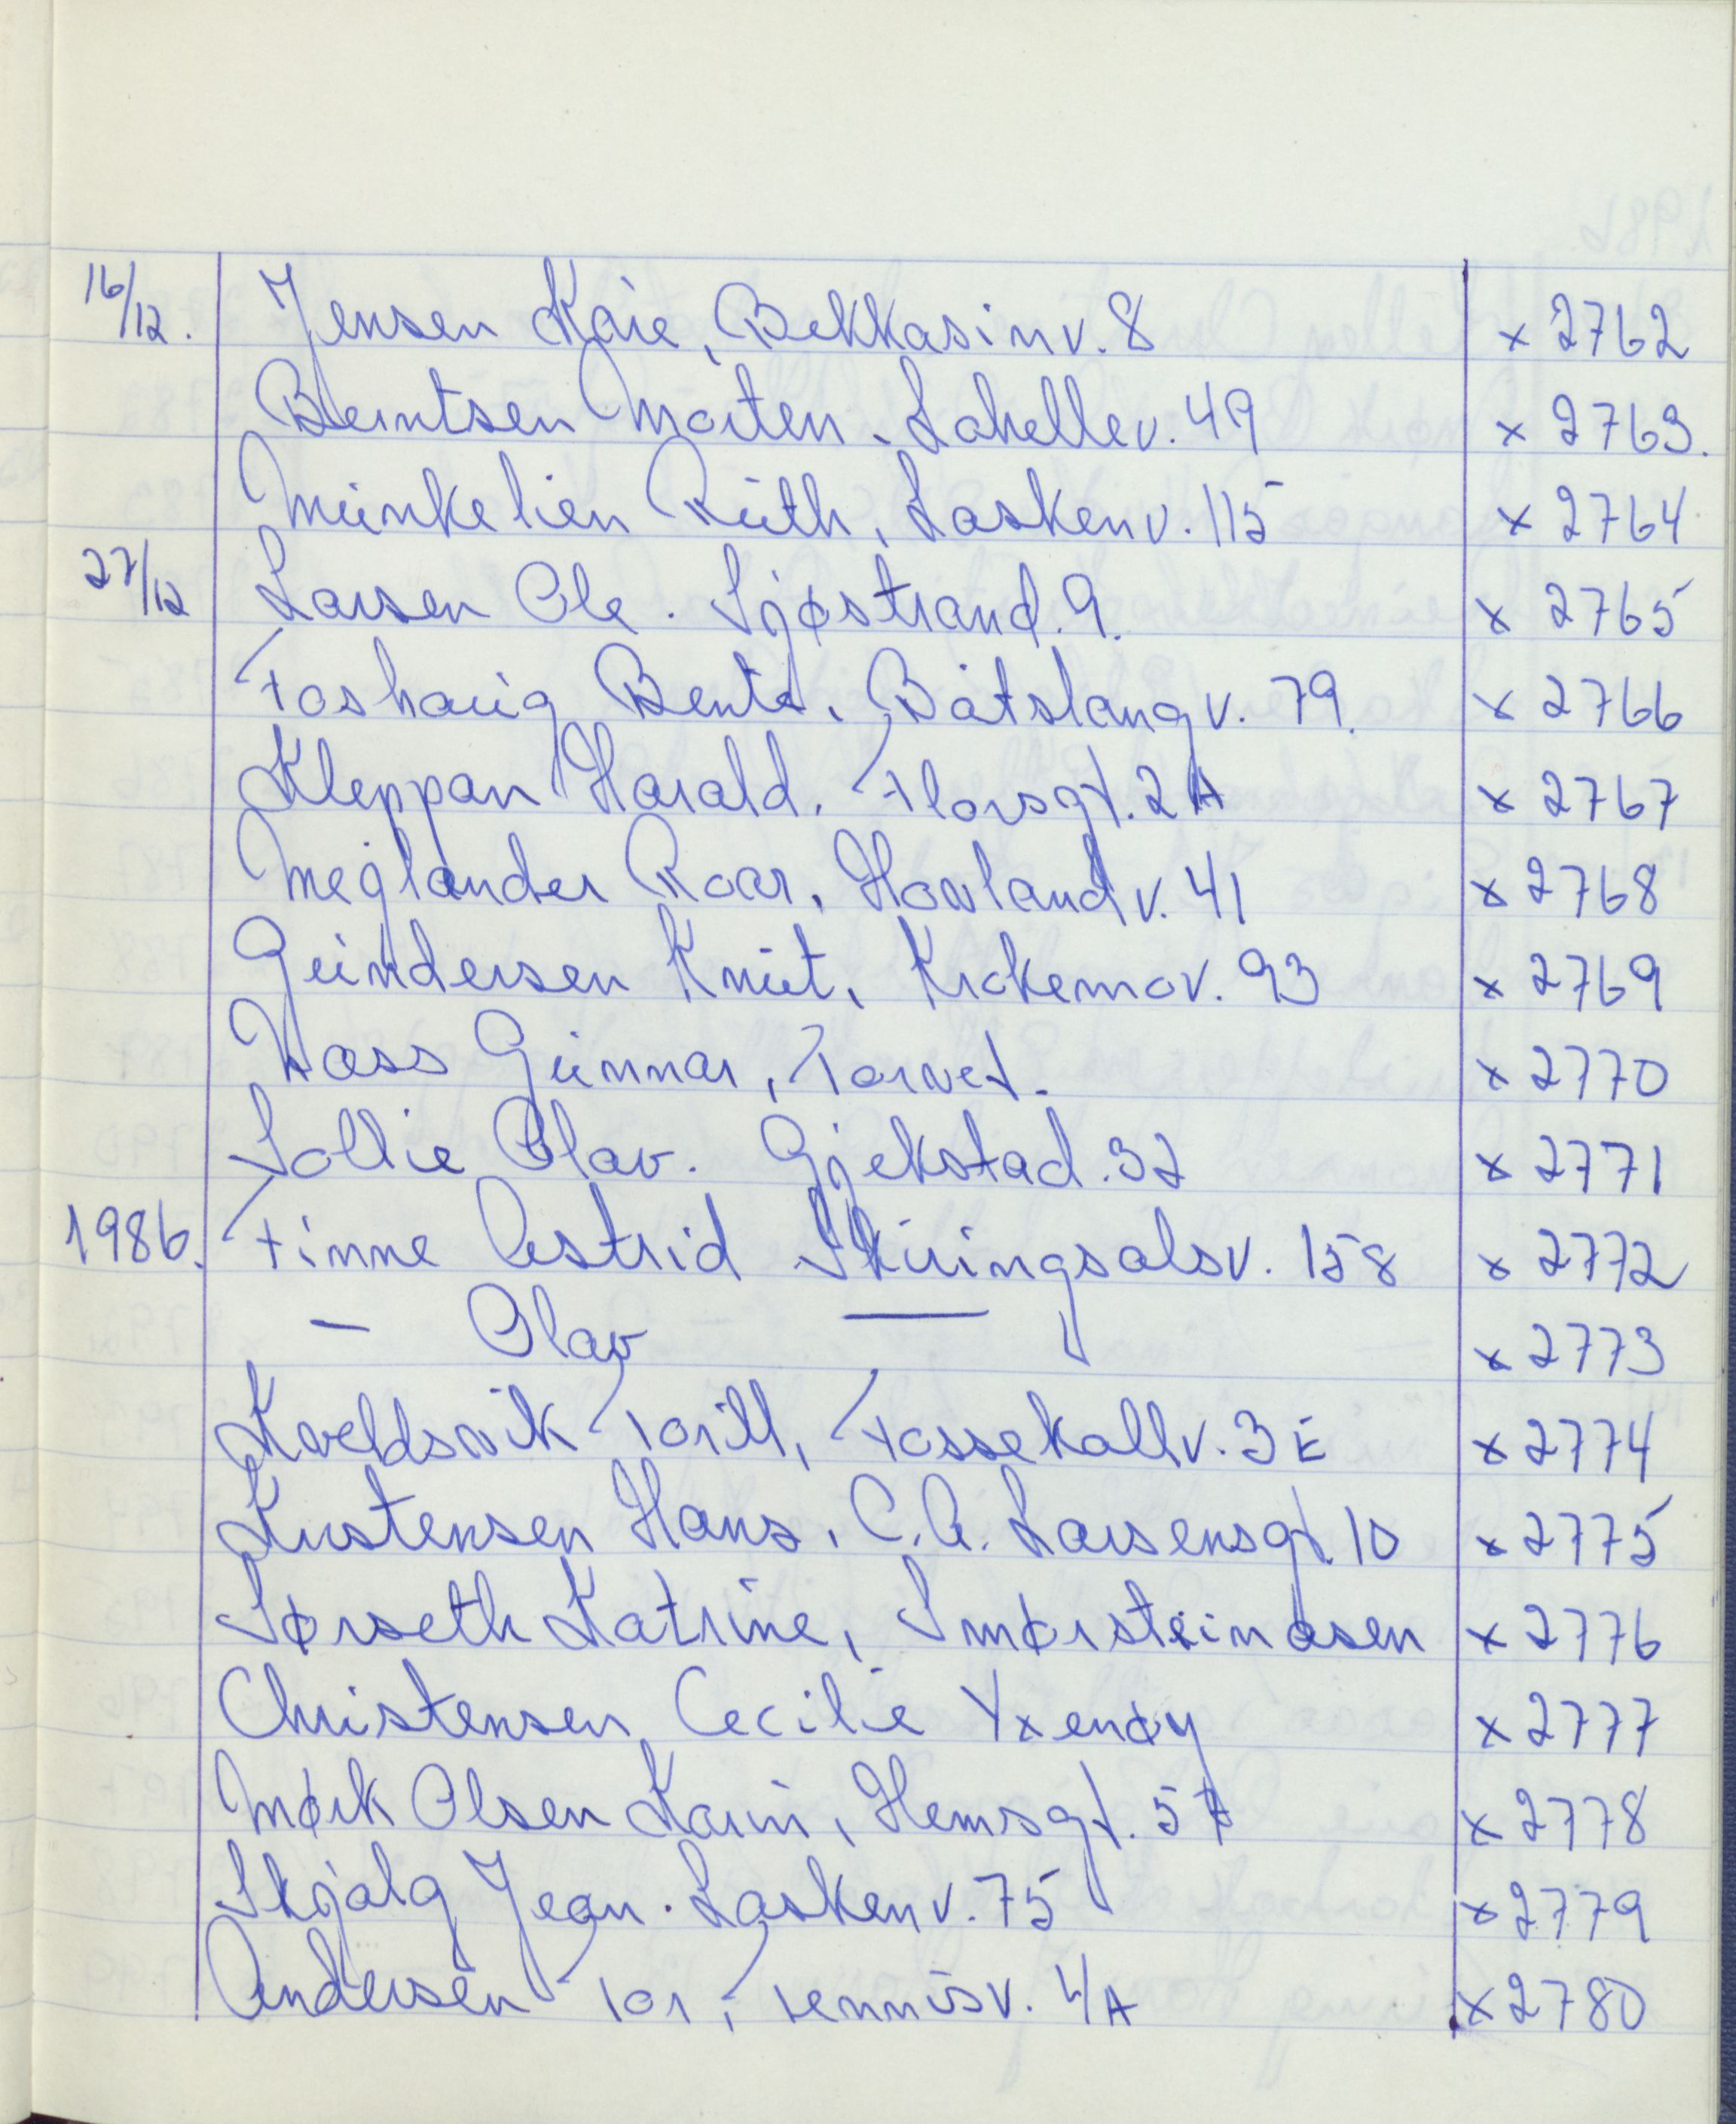 16/12. Jensen Kåre, Bekkasinv. 8 x 2762
Berntsen Morten. Lahellev. 49 x 2763.
Munkelien Ruth, Laskenv. 115 x 2764
27/12 Larsen Ole. Sjøstrand. 9. x 2765
Foshaug Bente. Båtstangv. 79. x 2766
Kleppan Harald. Florsgt. 2A x 2767
Meglander Roar. Hovlandv. 41 x 2768
Gundersen Knut. Krokemov. 93 x 2769
Wass Gunnar, Torvet. x 2770
Sollie Olav. Gjekstad. 32 x 2771
1986. Finne Astrid Skiringsalsv. 158 x 2772
— Olav — x 2773
Kveldsvik Torill, Fossekallv. 3E x 2774
Kristensen Hans. C.A. Larsensgt. 10 x 2775
Sørseth Katrine, Smørsteinåsen x 2776
Christensen Cecilie Yxenøy x 2777
Mørk Olsen Karin, Hemsgt. 57 x 2778
Skjalg Jean. Laskenv. 75 x 2779
Andersen Tor, Tennisv. 4A x 2780